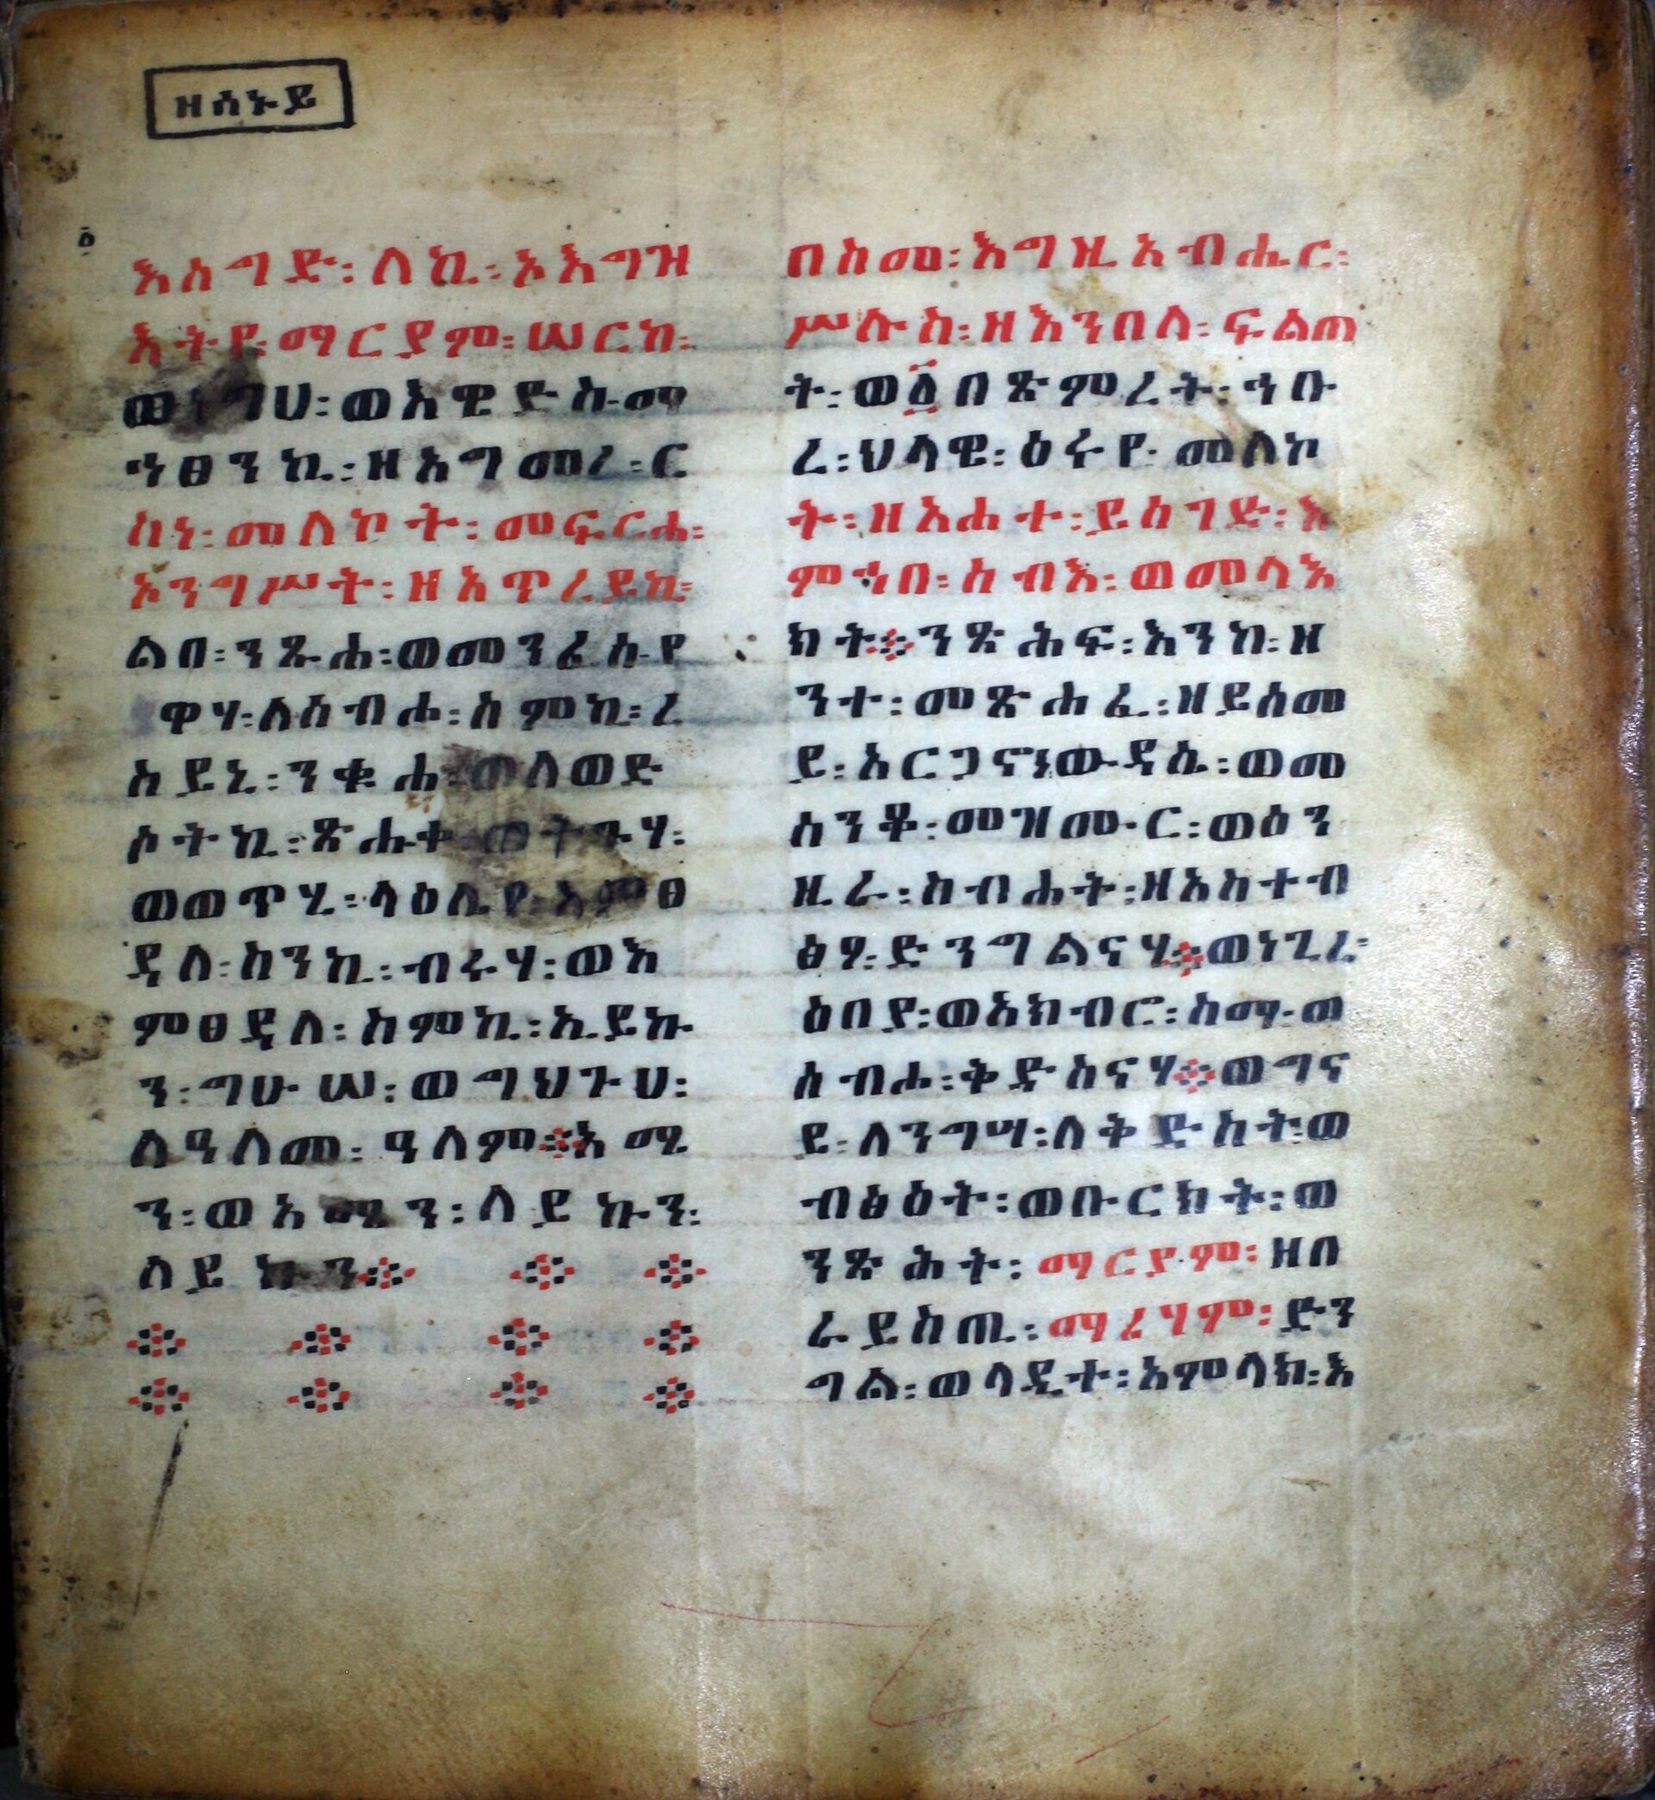 ዘሰኑይ
እሰግድ፡ ለኪ፡ ኦእግዝ
እትየ፡ ማርያም፡ ሠርከ፡
ወነግሀ፡ ወእዌድስ፡ ማ
ኅፀንኪ፡ ዘአግመረ፡ ር
ስነ፡ መለኮት፡ መፍርሐ፡
ኦንግሥት፡ ዘአጥረይኪ፡
ልበ፡ ንጹሐ፡ ወመንፈሰ፡ የ
ዋሃ፡ ለሰብሖ፡ ስምኪ፡ ረ
ስይኒ፡ ንቁሐ፡ ወለወድ
ሶትኪ፡ ጽሑቀ፡ ወትጉሃ፡
ወወጥሂ፡ ላዕሌየ፡ እምፀ
ዳለ፡ ስንኪ፡ ብሩሃ፡ ወእ
ምፀዳለ፡ ስምኪ፡ ኢይኩ
ን፡ ግሁሠ፡ ወግህጉሀ፡
ለዓለመ፡ ዓለም፨ አሜ
ን፡ ወአሜን፡ ለይኩን፡
ለይኩን፨
በስመ፡ እግዚአብሔር፡
ሥሉስ፡ ዘእንበለ፡ ፍልጠ
ት፡ ወ፩በጽምረት፡ ኅቡ
ረ፡ ህላዌ፡ ዕሩየ፡ መለኮ
ት፡ ዘአሐተ፡ ይሰገድ፡ እ
ምኀበ፡ ሰብእ፡ ወመላእ
ክት፨ ንጽሕፍ፡ እንከ፡ ዘ
ንተ፡ መጽሐፈ፡ ዘይሰመ
ይ፡ አርጋኖነ፡ ውዳሴ፡ ወመ
ሰንቆ፡ መዝሙር፡ ወዕን
ዚራ፡ ስብሐት፡ ዘአስተብ
ፅዖ፡ ድንግልናሃ፨ ወነጊረ፡
ዕበያ፡ ወአክብሮ፡ ስማ፡ ወ
ሰብሖ፡ ቅድስናሃ፨ ወግና
ይ፡ ለንግሣ፡ ለቅድስት፡ ወ
ብፅዕት፡ ወቡርክት፡ ወ
ንጽሕት፡ ማርያም፡ ዘበ
ራይስጢ፡ ማሪሃም፡ ድን
ግል፡ ወላዲተ፡ አምላክ፡ እ